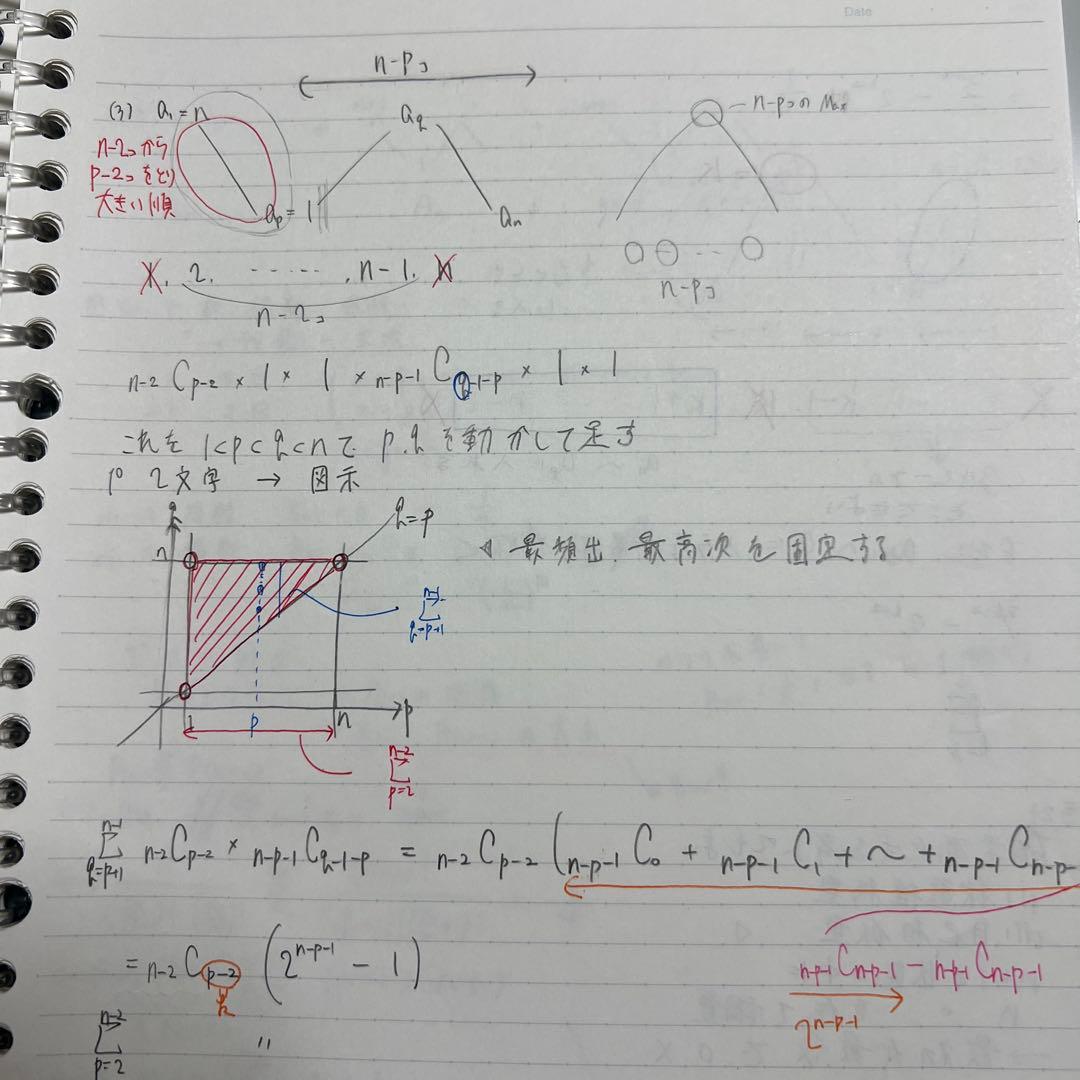 Date
n-pコ
(3) a₁ = n
a_q
n-pコの Max
n-2コから
p-2コをとり
大きい順
a_p = 1
a_n
1, 2, ……, n-1, n
n-2コ
n-pコ
ₙ₋₂C_{p-2} × 1 × 1 × ₙ₋ₚ₋₁C_{q-1-p} × 1 × 1
これを 1<p<q<n で p, q を動かして足す
1° 2文字 → 図示
q
q=p
n
◁ 最頻出, 最高次を固定する
Σ_{q=p+1}^{n-1}
1 p n p
Σ_{p=2}^{n-2}
Σ_{q=p+1}^{n-1} ₙ₋₂C_{p-2} × ₙ₋ₚ₋₁C_{q-1-p} = ₙ₋₂C_{p-2} (ₙ₋ₚ₋₁C₀ + ₙ₋ₚ₋₁C₁ + ~ + ₙ₋ₚ₋₁C_{n-p-
= ₙ₋₂C_{p-2} (2^{n-p-1} - 1)
ₙ₋ₚ₋₁C_{n-p-1} - ₙ₋ₚ₋₁C_{n-p-1}
k
2^{n-p-1}
Σ_{p=2}^{n-2} 〃